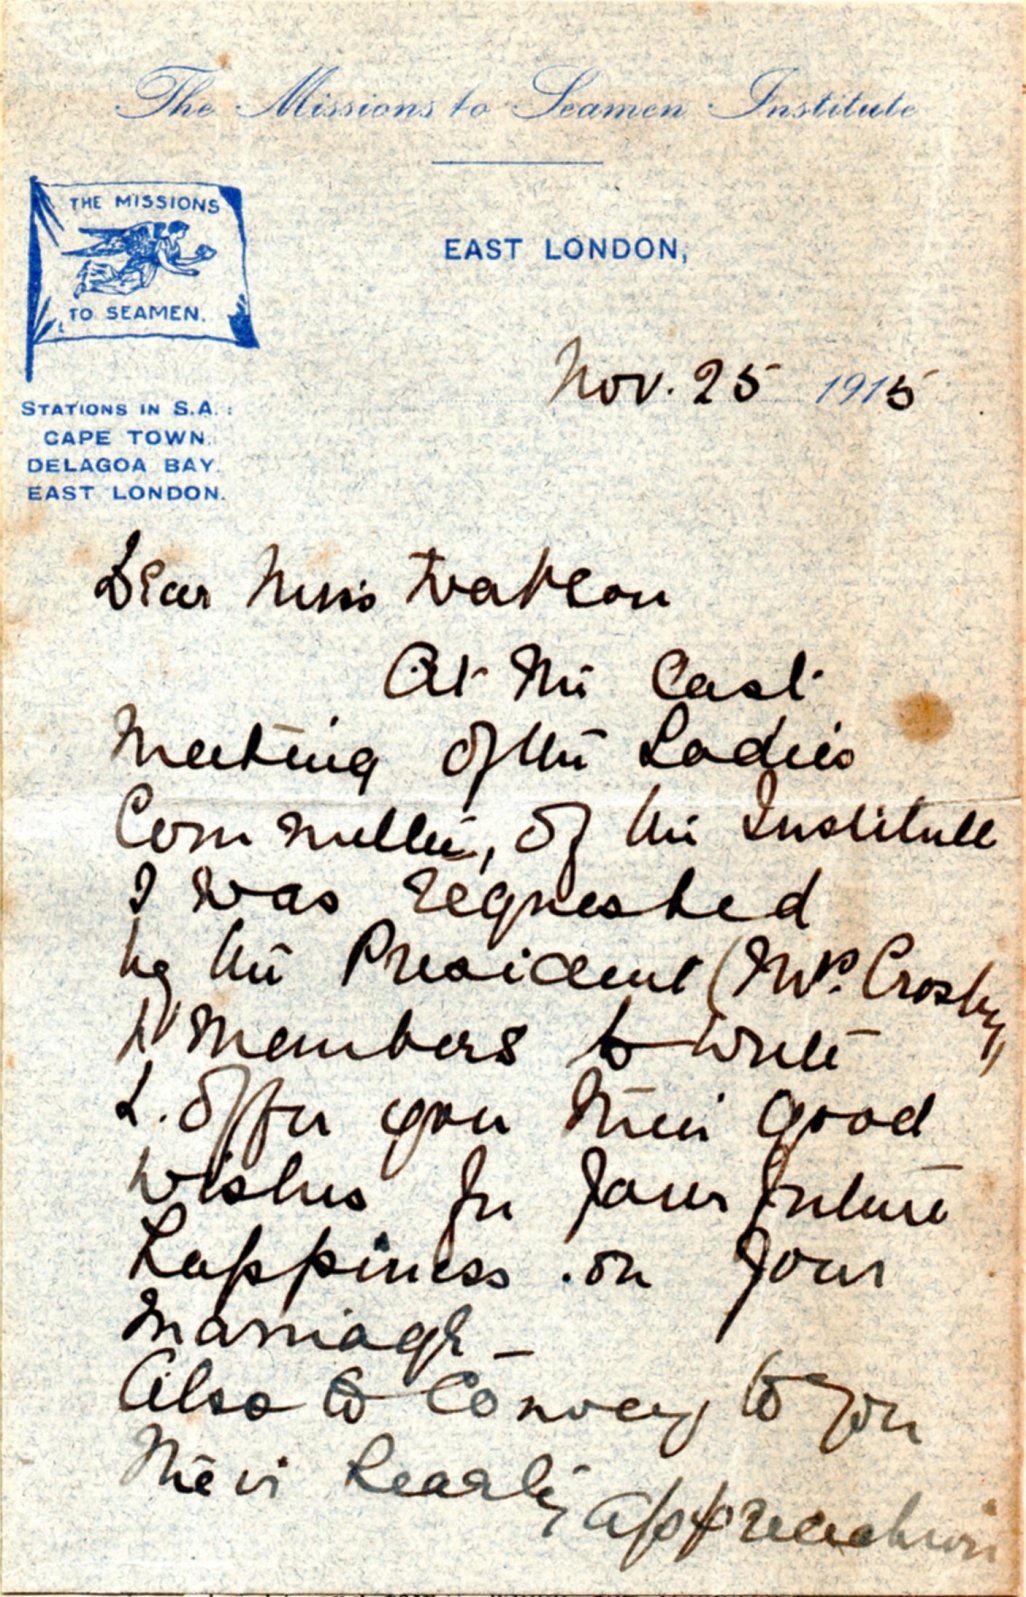 The Missions to Seamen Institute
THE MISSIONS
TO SEAMEN.
EAST LONDON,
Nov. 25 1915
STATIONS IN S.A.:
CAPE TOWN.
DELAGOA BAY.
EAST LONDON.
Dear Miss Watson
At the last
Meeting of the Ladies
Committee, of the Institute
I was requested
by the President (Mrs. Crosby)
& Members to write
& offer you their good
wishes for your future
happiness on your
marriage –
Also to convey to you
their hearty appreciation